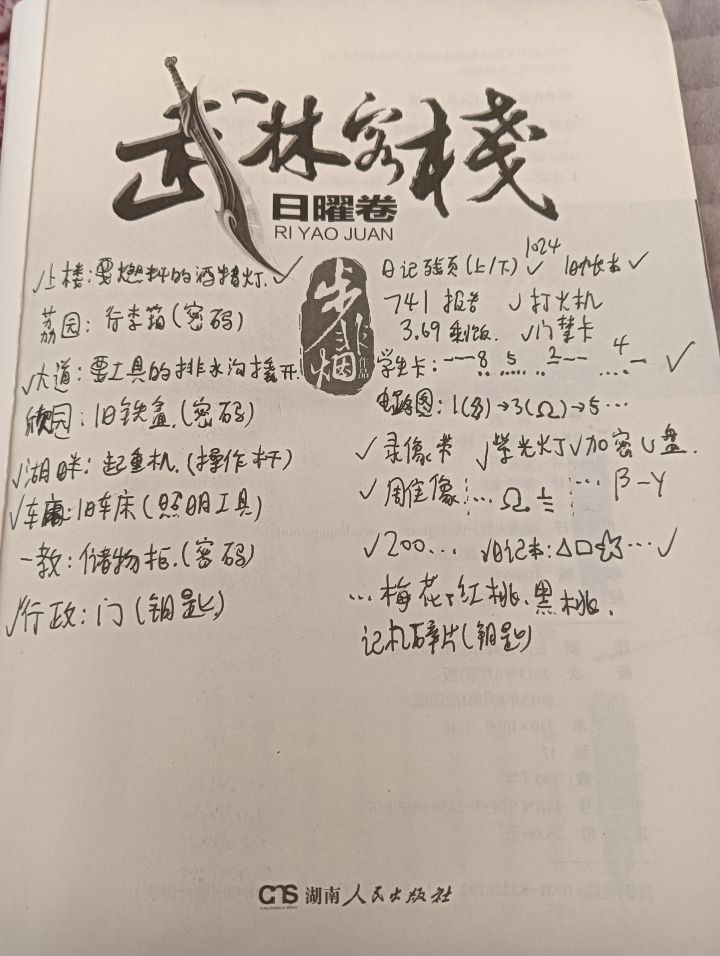 武林客栈
日曜卷
RI YAO JUAN
步非烟
作品
√上楼：要燃料的酒精灯．√
荔园：行李箱（密码）
√大道：要工具的排水沟撬开．
欣园：旧铁盒．（密码）
√湖畔：起重机．（操作杆）
√车库：旧车床（照明工具）
一教：储物柜．（密码）
√行政：门（钥匙）
日记残页（上/下）√ 1024 旧帐本√
741 报告 √打火机
3.69 剩饭． √门禁卡
学生卡：---8 5 2--- 4- √
电路图：1(8)→3(Ω)→5…
√录像带 √荧光灯√加密U盘．
√周隹像：… Ω … β-γ
√200… √日记本：△□☆…√
…梅花√红桃、黑桃．
记机碎片（钥匙）
CNS 湖南人民出版社